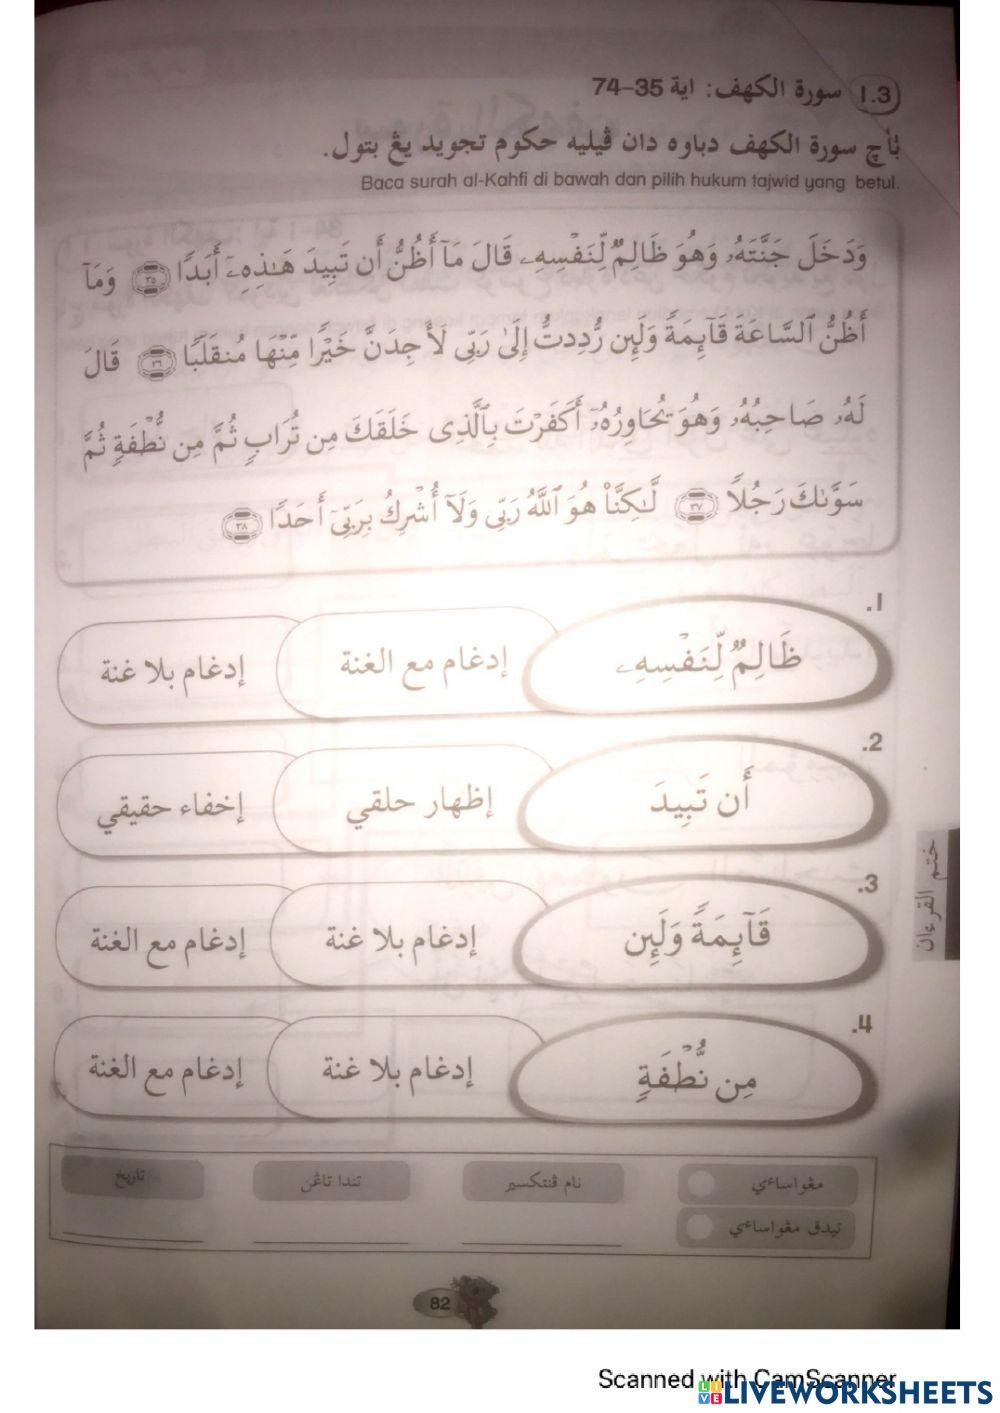 1.3 سورة الكهف: اية 35–74
باچ سورة الكهف دباوه دان ڤيليه حكوم تجويد يڠ بتول.
Baca surah al-Kahfi di bawah dan pilih hukum tajwid yang betul.
وَدَخَلَ جَنَّتَهُۥ وَهُوَ ظَالِمٌ لِّنَفْسِهِۦ قَالَ مَآ أَظُنُّ أَن تَبِيدَ هَـٰذِهِۦٓ أَبَدًا ٣٥ وَمَآ
أَظُنُّ ٱلسَّاعَةَ قَآئِمَةً وَلَئِن رُّدِدتُّ إِلَىٰ رَبِّى لَأَجِدَنَّ خَيْرًا مِّنْهَا مُنقَلَبًا ٣٦ قَالَ
لَهُۥ صَاحِبُهُۥ وَهُوَ يُحَاوِرُهُۥٓ أَكَفَرْتَ بِٱلَّذِى خَلَقَكَ مِن تُرَابٍ ثُمَّ مِن نُّطْفَةٍ ثُمَّ
سَوَّىٰكَ رَجُلًا ٣٧ لَّـٰكِنَّا۠ هُوَ ٱللَّهُ رَبِّى وَلَآ أُشْرِكُ بِرَبِّىٓ أَحَدًا ٣٨
1.
ظَالِمٌ لِّنَفْسِهِۦ إدغام مع الغنة إدغام بلا غنة
2.
أَن تَبِيدَ إظهار حلقي إخفاء حقيقي
3.
قَآئِمَةً وَلَئِن إدغام بلا غنة إدغام مع الغنة
4.
مِن نُّطْفَةٍ إدغام بلا غنة إدغام مع الغنة
ختم القرءان
مڠواساءي نام ڤنتكسير تندا تاڠن تاريخ
تيدق مڠواساءي
82
Scanned with CamScanner
LIVEWORKSHEETS